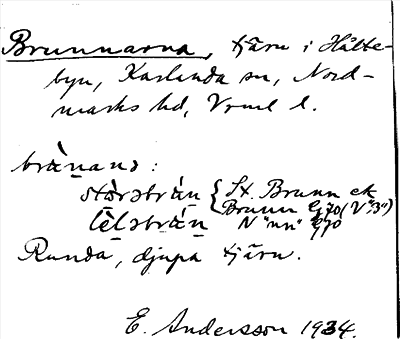 Brunnarna, tjärn i Hålte-
byn, Karlanda sn, Nord-
marks hd, Vrml l.
brànans:
stòrəbràn { St. Brunn ek
Brunn G70 (V "3")
lèlsbràn N "nn" G70
Runda, djupa tjärn.
E. Andersson 1934.